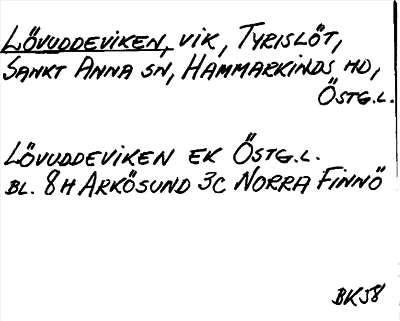 LÖVUDDEVIKEN, VIK, TYRISLÖT,
SANKT ANNA SN, HAMMARKINDS HD,
ÖSTG.L.
LÖVUDDEVIKEN EK ÖSTG.L.
BL. 8H ARKÖSUND 3C NORRA FINNÖ
BK58